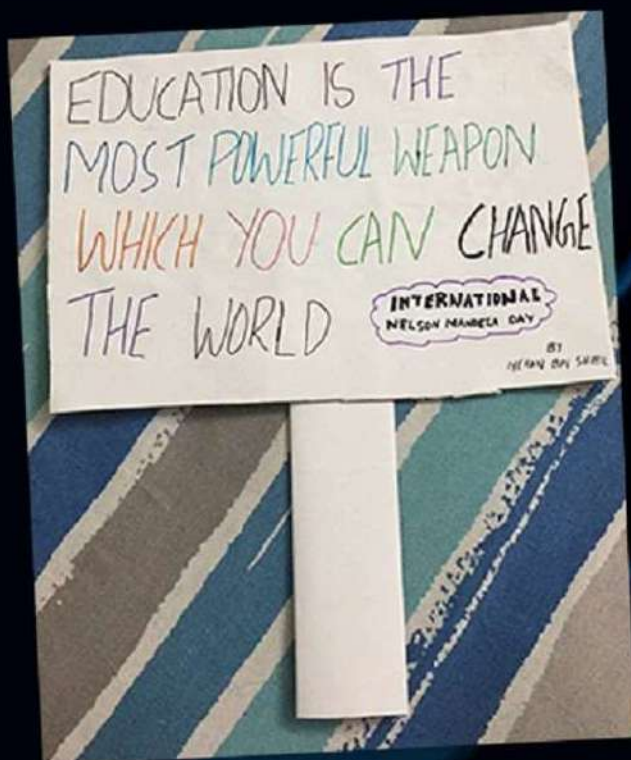 EDUCATION IS THE
MOST POWERFUL WEAPON
WHICH YOU CAN CHANGE
THE WORLD
INTERNATIONAL
NELSON MANDELA DAY
BY